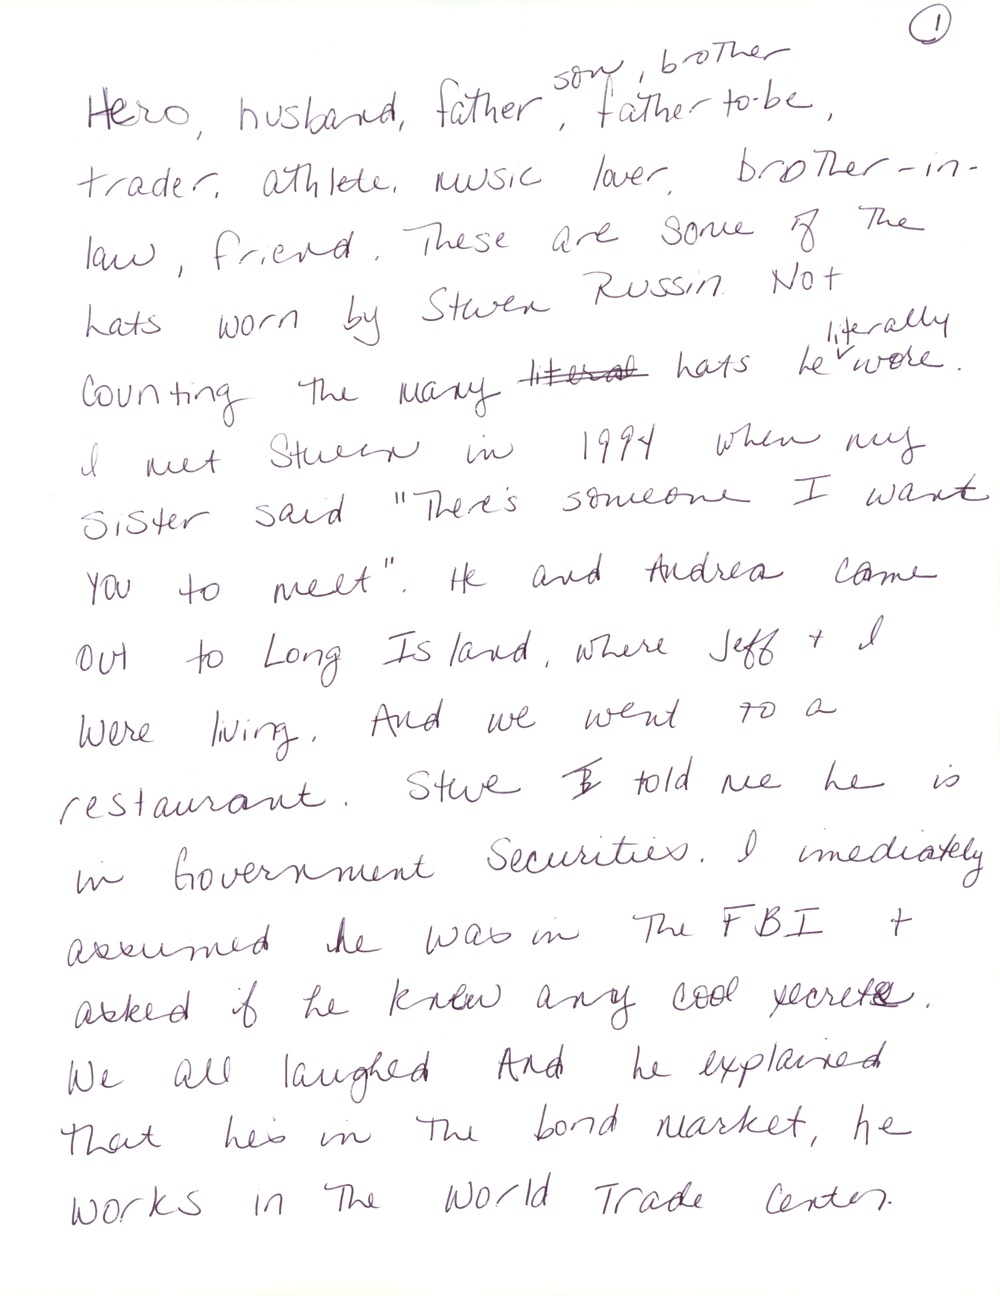 1
son, brother
Hero, husband, father, father-to-be,
trader, athlete, music lover, brother-in-
law, friend. These are some of the
hats worn by Steven Russin. Not
literally
counting the many literal hats he wore.
I met Steven in 1994 when my
sister said "There's someone I want
you to meet". He and Andrea came
out to Long Island, where Jeff + I
were living. And we went to a
restaurant. Steve I told me he is
in Government Securities. I imediately
assumed he was in the FBI +
asked if he knew any cool secrets.
We all laughed And he explained
that he's in the bond market, he
works in the World Trade Center.